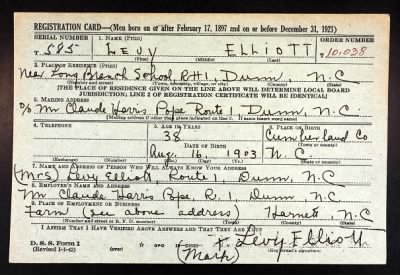 REGISTRATION CARD—(Men born on or after February 17, 1897 and on or before December 31, 1921)
SERIAL NUMBER 1. NAME (Print) ORDER NUMBER
T 585 LEVY ELLIOTT 10,038
(First) (Middle) (Last)
2. PLACE OF RESIDENCE (Print)
Near Long Branch School Rt 1, Dunn, N.C
(Number and street) (Town, township, village, or city) (County) (State)
[THE PLACE OF RESIDENCE GIVEN ON THE LINE ABOVE WILL DETERMINE LOCAL BOARD
JURISDICTION; LINE 2 OF REGISTRATION CERTIFICATE WILL BE IDENTICAL]
3. MAILING ADDRESS
c/o Mr Claude Harris Pope Route 1, Dunn, N.C.
[Mailing address if other than place indicated on line 2. If same insert word same]
4. TELEPHONE 5. AGE IN YEARS 6. PLACE OF BIRTH
38 Cumberland Co
DATE OF BIRTH (Town or county)
Aug. 16, 1903 N.C
(Exchange) (Number) (Mo.) (Day) (Yr.) (State or country)
7. NAME AND ADDRESS OF PERSON WHO WILL ALWAYS KNOW YOUR ADDRESS
(Mrs) Levy Elliott Route 1, Dunn, N.C
8. EMPLOYER'S NAME AND ADDRESS
Mr. Claude Harris Pope, R. 1, Dunn, N.C
9. PLACE OF EMPLOYMENT OR BUSINESS
Farm (see above address) Harnett, N.C
(Number and street or R. F. D. number) (Town) (County) (State)
I AFFIRM THAT I HAVE VERIFIED ABOVE ANSWERS AND THAT THEY ARE TRUE.
D. S. S. Form 1
(Revised 1-1-42) (over)
Levy Elliott
(Mark)